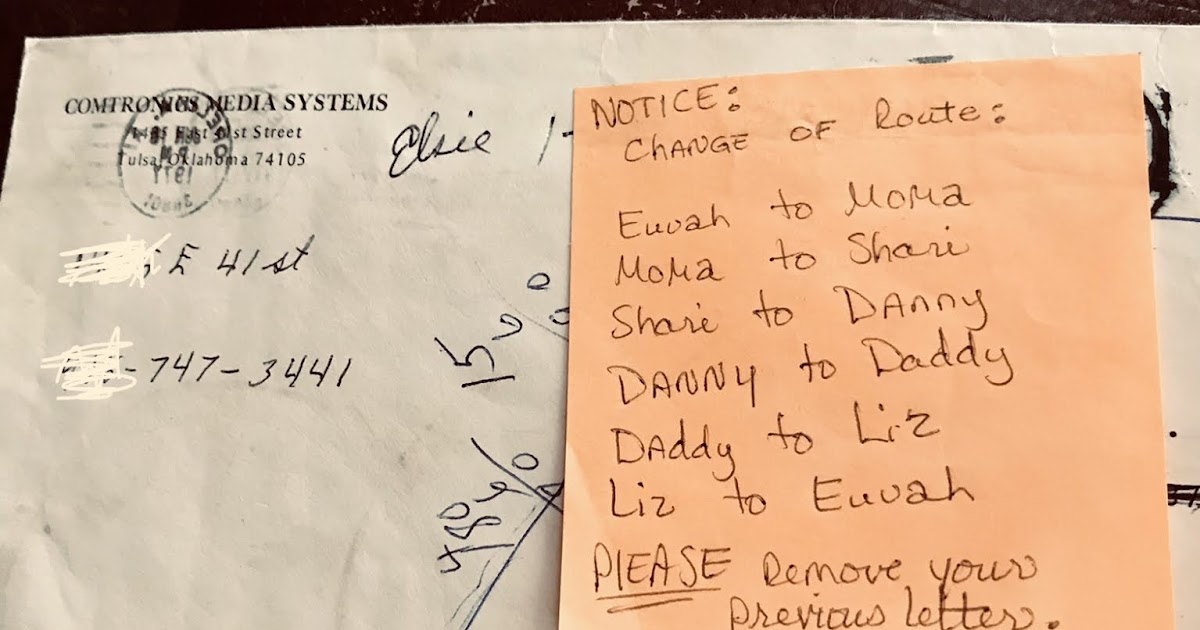 COMTRONICS MEDIA SYSTEMS
East 41st Street
Tulsa, Oklahoma 74105
Elsie
E 41st
-747-3441
15
NOTICE:
CHANGE OF Route:
Euvah to MoMa
MoMa to Shari
Shari to DANNY
DANNY to Daddy
DAddy to Liz
Liz to Euvah
PLEASE Remove your
previous letter.